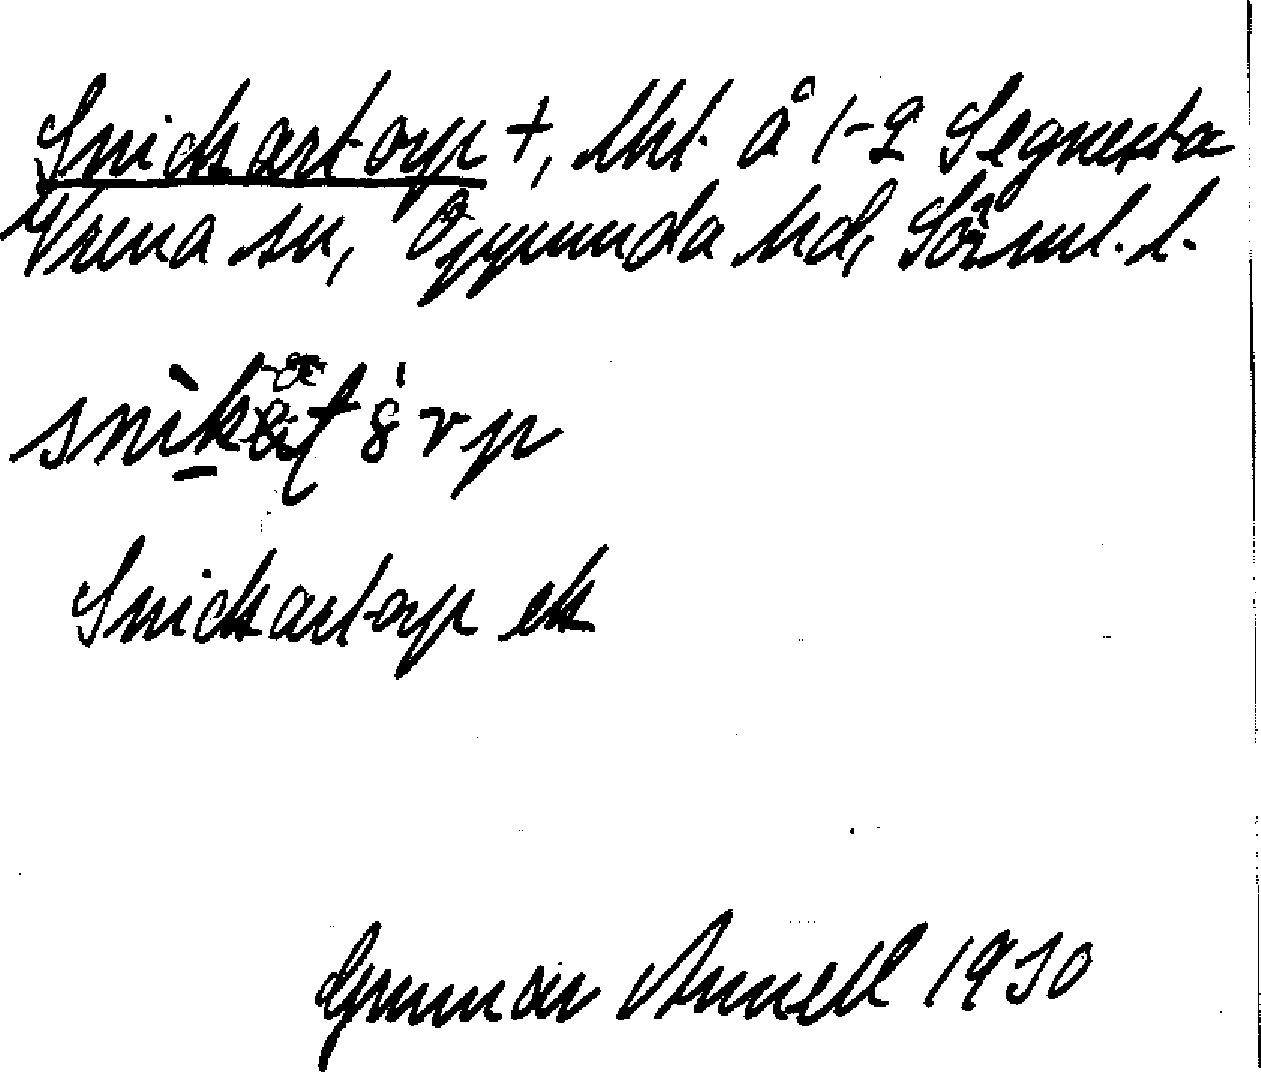 Snickartorp +, lht. å 1-2 Segnesta
Vrena sn, Oppunda hd, Sörml. l.
Snickartorp ek
Gunnar Annell 1930